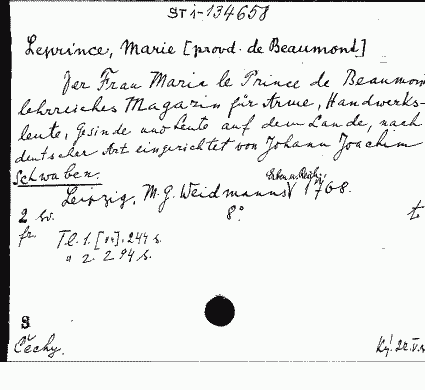 ST i-134658
Leprince, Marie [provd. de Beaumont]
Der Frau Maria le Prince de Beaumont
lehrreiches Magazin für Arme, Handwerks-
leute, Gesinde und Leute auf dem Lande, nach
deutscher Art eingerichtet von Johann Joachim
Schwaben.
Leipzig, M. G. Weidmanns Erben u. Reich, 1768.
2 sv. 8°
fr. Tl. 1. 244 s.
" 2. 294 s.
S
Čechy.